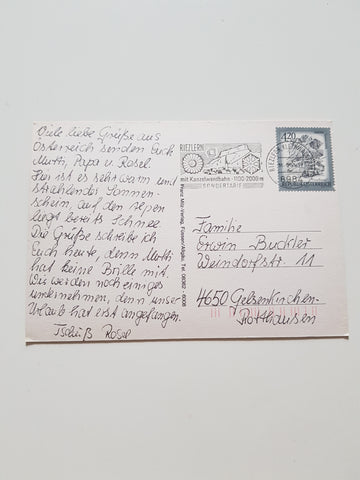 Viele liebe Grüße aus
Österreich senden Euch
Mutti, Papa u. Rosel.
Hier ist es sehr warm und
strahlender Sonnen-
schein, auf den Alpen
liegt bereits Schnee.
Die Grüße schreibe ich
Euch heute, denn Mutti
hat keine Brille mit.
Wir werden noch einiges
unternehmen, denn unser
Urlaub hat erst angefangen.
Tschüß Rosel
RIEZLERN
mit Kanzelwandbahn 1100-2000 m
SONDERTARIF
120
REPUBLIK ÖSTERREICH
Familie
Erwin Buckler
Weindorfstr. 11
4650 Gelsenkirchen-
Rotthausen